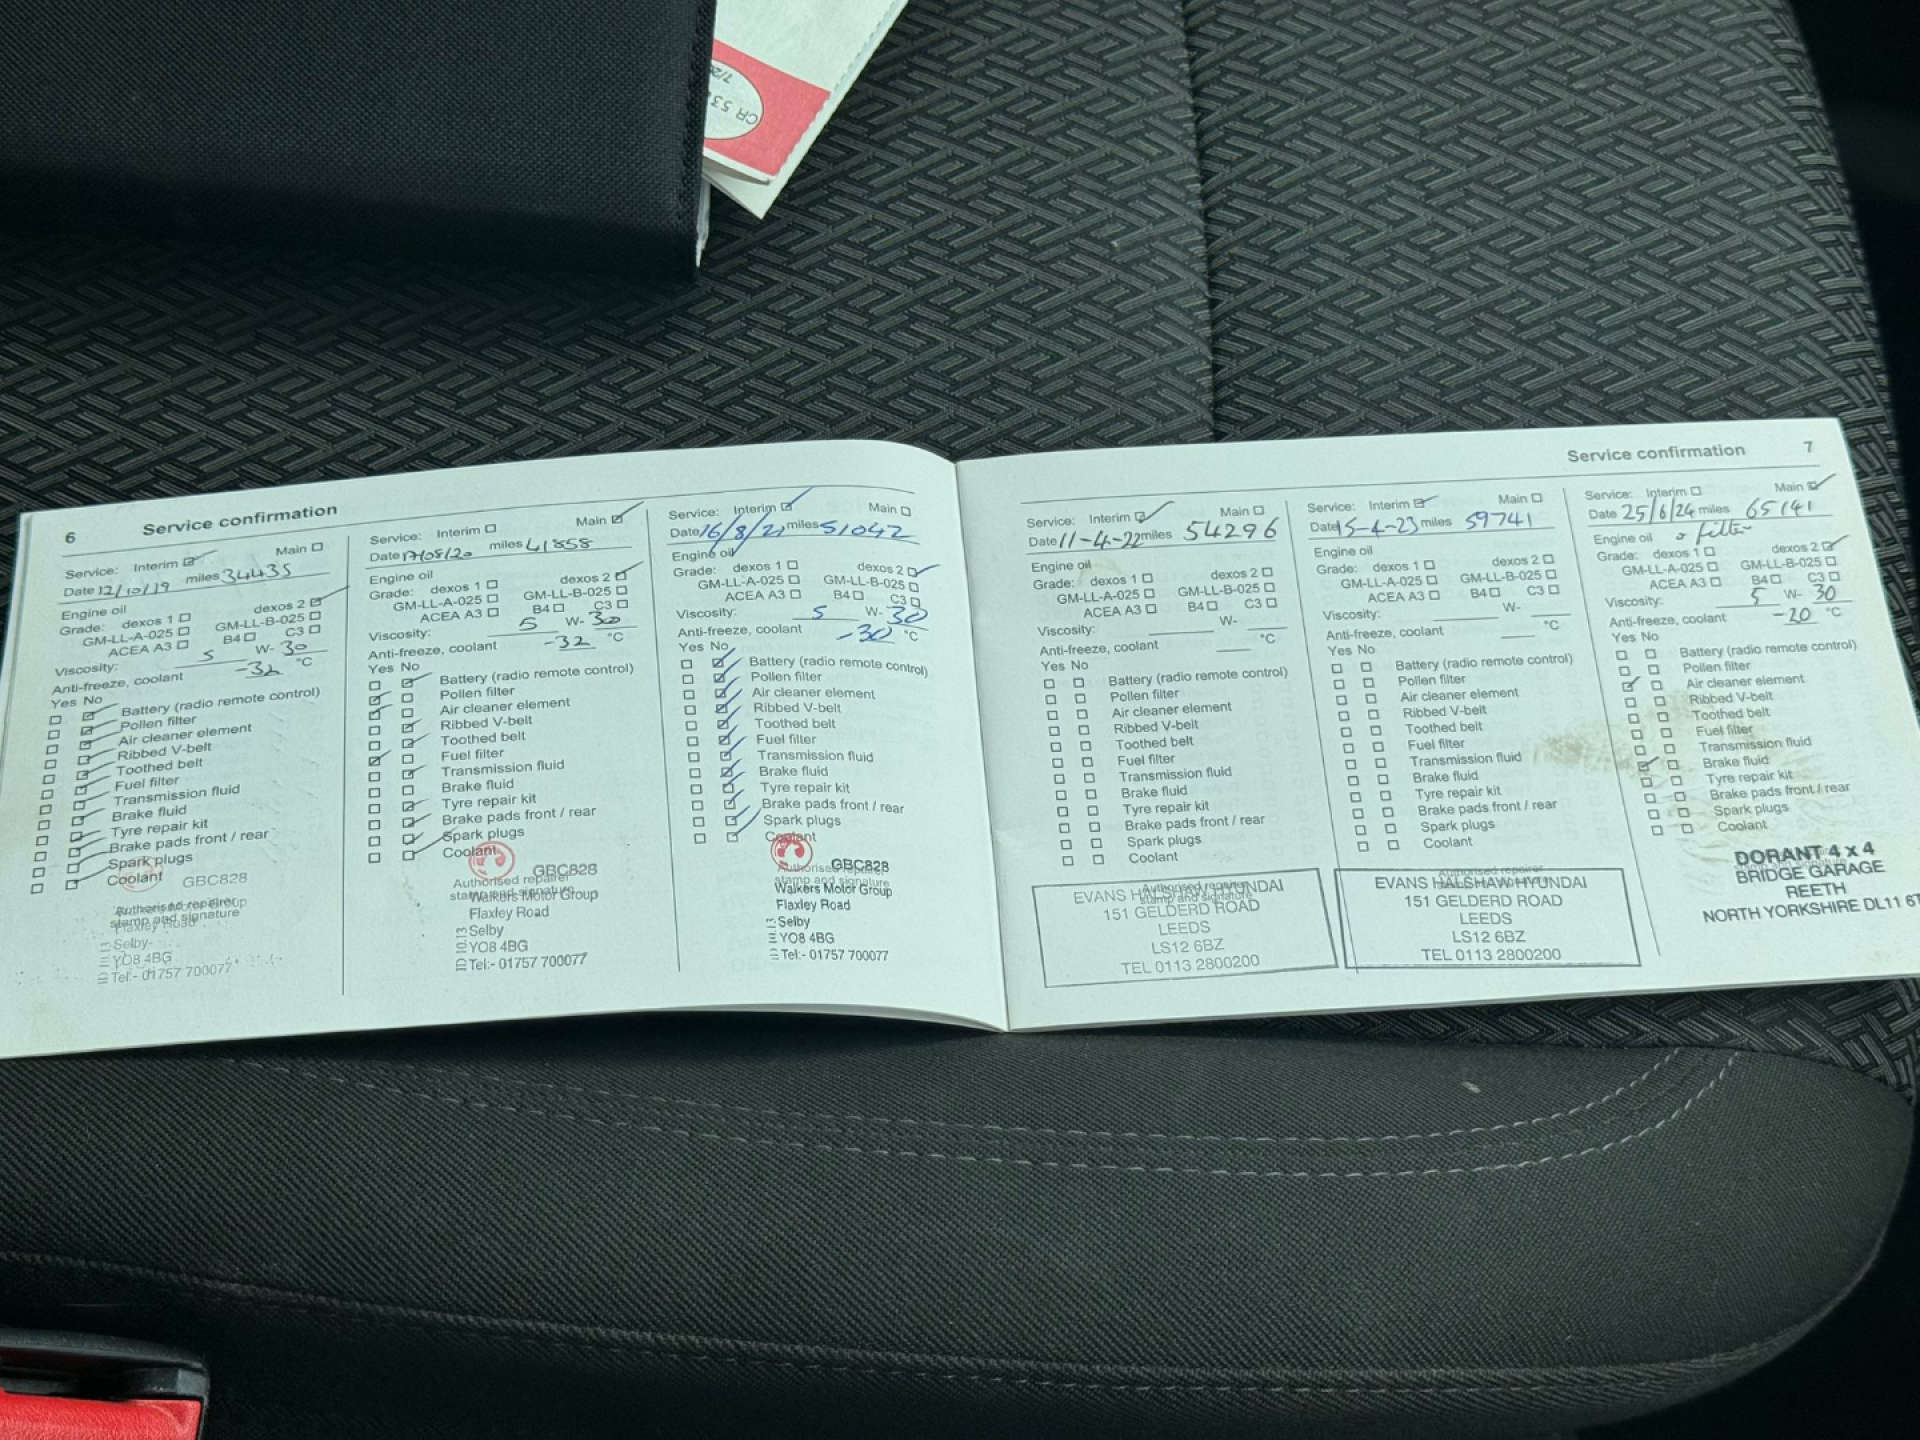 CR 53
7/2
6 Service confirmation
Service: Interim Main
Date 12/10/19 miles 34435
Engine oil
Grade: dexos 1 dexos 2
GM-LL-A-025 GM-LL-B-025
ACEA A3 B4 C3
Viscosity: 5 W- 30
Anti-freeze, coolant -32 °C
Yes No
Battery (radio remote control)
Pollen filter
Air cleaner element
Ribbed V-belt
Toothed belt
Fuel filter
Transmission fluid
Brake fluid
Tyre repair kit
Brake pads front / rear
Spark plugs
Coolant
GBC828
Authorised repairer
stamp and signature
Flaxley Road
Selby
YO8 4BG
Tel:- 01757 700077
Service: Interim Main
Date 17/08/20 miles 41858
Engine oil
Grade: dexos 1 dexos 2
GM-LL-A-025 GM-LL-B-025
ACEA A3 B4 C3
Viscosity: 5 W- 30
Anti-freeze, coolant -32 °C
Yes No
Battery (radio remote control)
Pollen filter
Air cleaner element
Ribbed V-belt
Toothed belt
Fuel filter
Transmission fluid
Brake fluid
Tyre repair kit
Brake pads front / rear
Spark plugs
Coolant
GBC828
Authorised repairer
stamp and signature
Walkers Motor Group
Flaxley Road
Selby
YO8 4BG
Tel:- 01757 700077
Service: Interim Main
Date 16/8/21 miles 51042
Engine oil
Grade: dexos 1 dexos 2
GM-LL-A-025 GM-LL-B-025
ACEA A3 B4 C3
Viscosity: 5 W- 30
Anti-freeze, coolant -30 °C
Yes No
Battery (radio remote control)
Pollen filter
Air cleaner element
Ribbed V-belt
Toothed belt
Fuel filter
Transmission fluid
Brake fluid
Tyre repair kit
Brake pads front / rear
Spark plugs
Coolant
GBC828
Authorised repairer
stamp and signature
Walkers Motor Group
Flaxley Road
Selby
YO8 4BG
Tel:- 01757 700077
Service confirmation 7
Service: Interim Main
Date 11-4-22 miles 54296
Engine oil
Grade: dexos 1 dexos 2
GM-LL-A-025 GM-LL-B-025
ACEA A3 B4 C3
Viscosity: W-
Anti-freeze, coolant °C
Yes No
Battery (radio remote control)
Pollen filter
Air cleaner element
Ribbed V-belt
Toothed belt
Fuel filter
Transmission fluid
Brake fluid
Tyre repair kit
Brake pads front / rear
Spark plugs
Coolant
Authorised repairer
stamp and signature
EVANS HALSHAW HYUNDAI
151 GELDERD ROAD
LEEDS
LS12 6BZ
TEL 0113 2800200
Service: Interim Main
Date 15-4-23 miles 59741
Engine oil
Grade: dexos 1 dexos 2
GM-LL-A-025 GM-LL-B-025
ACEA A3 B4 C3
Viscosity: W-
Anti-freeze, coolant °C
Yes No
Battery (radio remote control)
Pollen filter
Air cleaner element
Ribbed V-belt
Toothed belt
Fuel filter
Transmission fluid
Brake fluid
Tyre repair kit
Brake pads front / rear
Spark plugs
Coolant
Authorised repairer
EVANS HALSHAW HYUNDAI
151 GELDERD ROAD
LEEDS
LS12 6BZ
TEL 0113 2800200
Service: Interim Main
Date 25/6/24 miles 65141
Engine oil & filter
Grade: dexos 1 dexos 2
GM-LL-A-025 GM-LL-B-025
ACEA A3 B4 C3
Viscosity: 5 W- 30
Anti-freeze, coolant -20 °C
Yes No
Battery (radio remote control)
Pollen filter
Air cleaner element
Ribbed V-belt
Toothed belt
Fuel filter
Transmission fluid
Brake fluid
Tyre repair kit
Brake pads front / rear
Spark plugs
Coolant
DORANT 4 x 4
BRIDGE GARAGE
REETH
NORTH YORKSHIRE DL11 6T